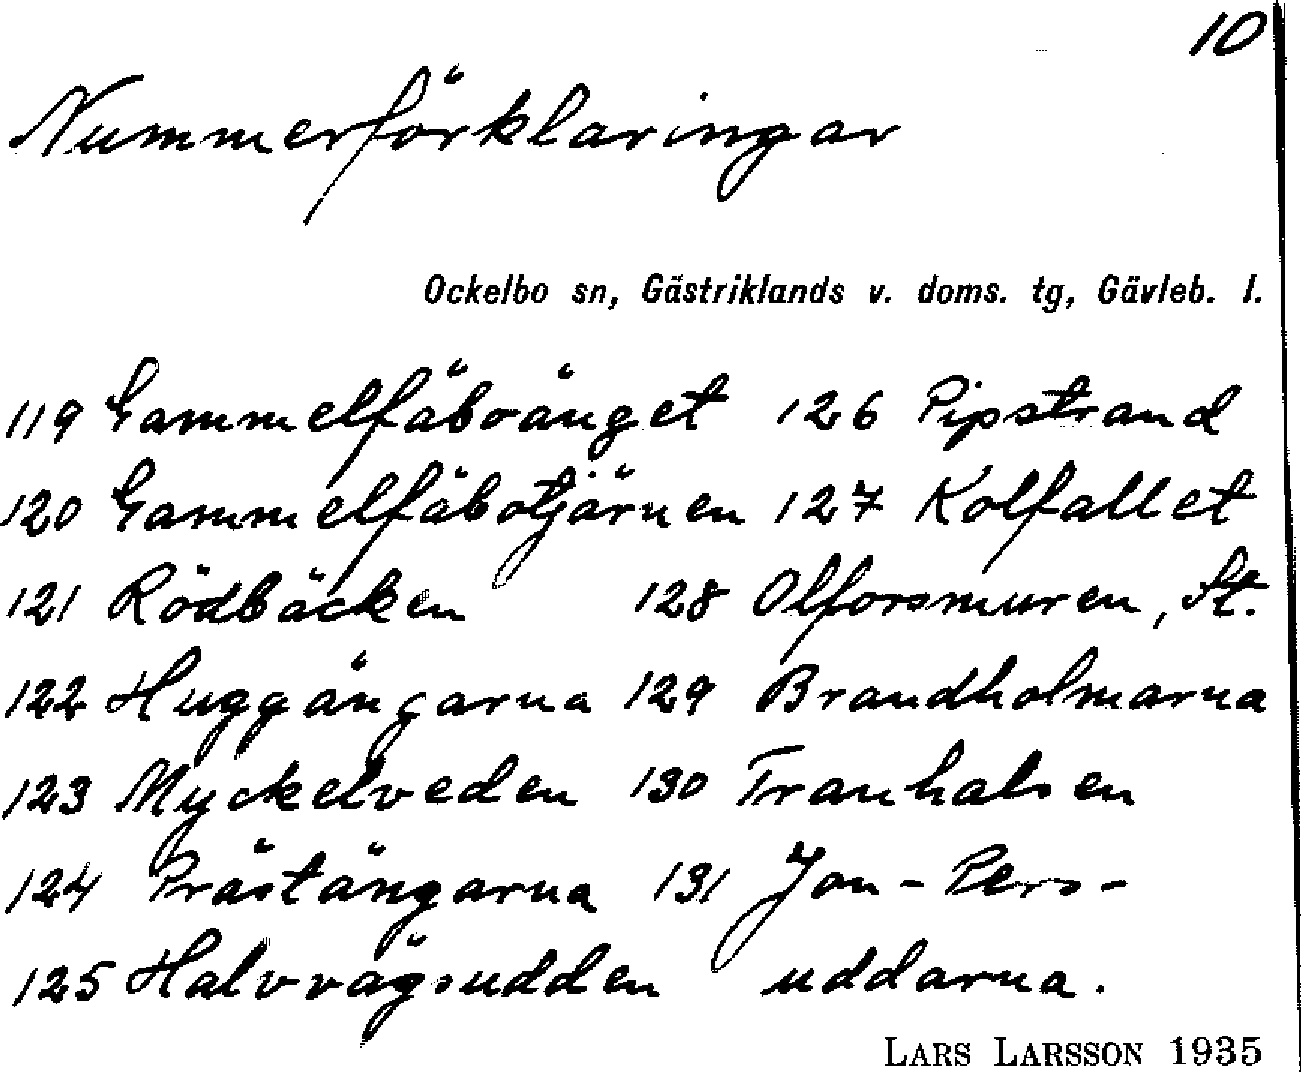 10
Nummerförklaringar
Ockelbo sn, Gästriklands v. doms. tg, Gävleb. l.
119 Gammelfäbovänget 126 Pipstrand
120 Gammelfäbotjärnen 127 Kolfallet
121 Rödbäcken 128 Olforsmuren, St.
122 Huggängarna 129 Brandholmarna
123 Myckelveden 130 Tranhalsen
124 Prästängarna 131 Jon-Pers-
125 Halvvägsudden uddarna.
LARS LARSSON 1935